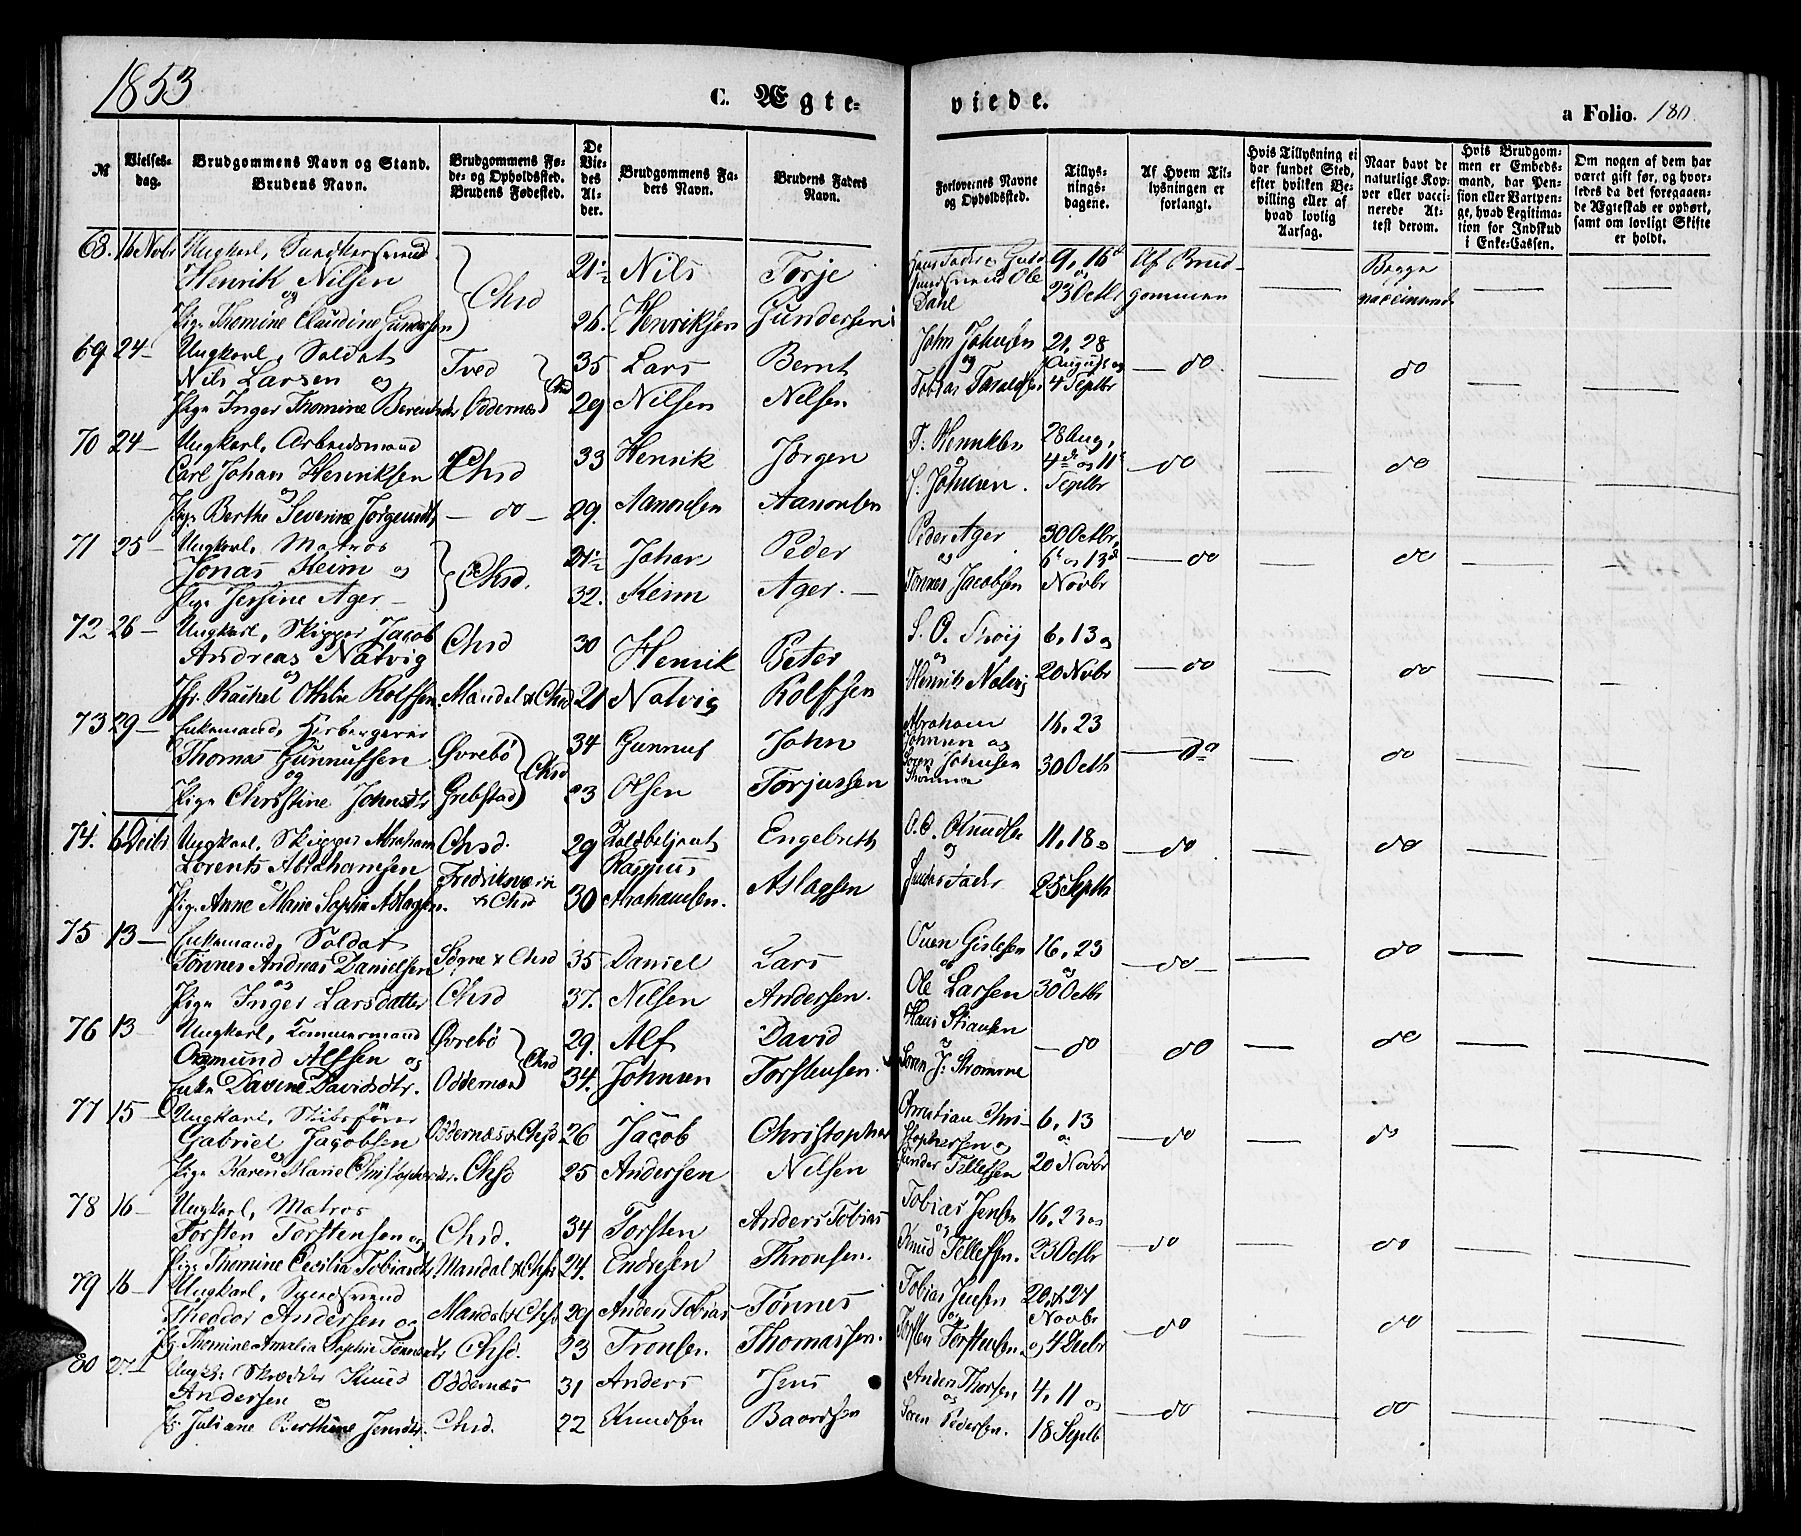 1853
C. Ægte-
viede.
a Folio. 180.
№
Vielses-
dag.
Brudgommens Navn og Stand.
Brudens Navn.
Brudgommens Fø-
de- og Opholdssted.
Brudens Fødested.
De
Vie-
des
Al-
der.
Brudgommens Fa-
ders Navn.
Brudens Faders
Navn.
Forlovernes Navne
og Opholdssted.
Tillys-
nings-
dagene.
Af Hvem Til-
lysningen er
forlangt.
Hvis Tillysning ei
har fundet Sted,
efter hvilken Be-
villing eller af
hvad lovlig
Aarsag.
Naar havt de
naturlige Kop-
per eller vacci-
nerede At-
test derom.
Hvis Brudgom-
men er Embeds-
mand, har Pen-
sion eller Vartpen-
ge, hvad Legitima-
tion for Indskud
i Enke-Cassen.
Om nogen af dem har
været gift før, og hvor-
ledes da det foregaaen-
de Ægteskab er ophørt,
samt om lovligt Skifte
er holdt.
68. 16 Novbr Ungkarl, 21½ Nils Torje 9, 16 Af Brud- Begge
Henrik Nilsen Chsd Ole 23 Octbr gommen vaccinerede
og Dahl
Pige Thomine Claudine Gundersen 26. Henriksen Gundersen
69. 24 — Ungkarl, Soldat Tved 35 Lars Bernt John Johnsen 21, 28 — do do
Nils Larsen og Chsd og August og
Pige Inger Thomine Oddernæs 29 Nilsen Nilsen Tobias Taraldsen 4 Septbr
70 24 — Ungkarl, Arbeidsmand 33 Henrik Jørgen T. Henriksen 28 Aug, — do do
Carl Johan Henriksen Chsd og 4de og 11
og J. Johnsen. Septbr
Pige Berthe Severine — do — 29. Aanonsen Aanonsen
71 25 — Ungkarl, Matros 21½ Johan Peder Peder Ager 30 Octbr, — do do
Jonas Keim og Chsd. og 6 og 13
Pige Jersine Ager — 32. Keim Ager. — Tønnes Jacobsen Novbr
72 26 — Ungkarl, Skipper Jacob Chsd 30 Henrik Peter S. O. 6, 13 og — do do
Andreas Natvig og
og
Rachel Othilie Rolfsen. Mandal & Chsd 21 Natvig Rolfsen Henrik Natvig 20 Novbr
73 29 — Enkemand, Herbergerer Øvrebø 34 Gunnuf John Abraham 16, 23 — do do
Thomas Gunnufsen Chsd Johnsen og
og Søren Johnsen 30 Octb
Pige Christine Johnsdtr Grebstad 23 Olsen Torjussen Strømme
74. 6 Decbr Ungkarl, Skipper Abraham Chsd. 29 Toldbetjent Engebreth O. O. Knudsen 11, 18 og — do do
Lorents Abrahamsen Rasmus og
og Fredriksværn
Pige Anne Marie Sophie Aslagsen. & Chsd 30 Abrahamsen. Aslagsen 25 Septb
75 13 — Enkemand, Soldat Søgne & Chsd 35 Daniel Lars Ouen Gislesen 16, 23 — do — do
Tønnes Andreas Danielsen og og
og
Pige Inger Larsdatter Chsd 37. Nilsen Andersen. Ole Larsen 30 Octbr
76 13 — Ungkarl, Tømmermand Øvrebø 29. Alf David Hans — do do do
Osmund Alfsen og Chsd og
Enke Davine Davidsdtr. Oddernæs 34. Johnsen Torstensen. Søren J. Strømme
77 15 — Ungkarl, Skibsfører 26 Jacob Christopher Christian Chri- 6, 13 — do do
Gabriel Jacobsen Oddernæs & Chsd stophersen og og
og
Pige Karen Marie Christophersdtr. Chsd 25 Andersen Nilsen Gunder Tellefsen 20 Novbr
78 16 — Ungkarl, Matros 34 Torsten Anders Tobias Tobias Jensen 16, 23 og — do do
Torsten Torstensen og Chsd. og
Pige Thomine Cecilia Tobiasdtr Mandal & Chsd 24. Endresen Thronsen. Knud Tellefsen. 23 Octbr
79 16 — Ungkarl, Smedsvend Tobias Jensen 20, & 27 — do do
Theodor Andersen og Mandal & Chsd 29 Anders Tobias Tønnes og Novbr
Pg. Thomine Amalia Sophie Tønnesdtr Chsd. 23 Tronsen. Thomassen. Torsten Torstensen. og 4 Decbr
80 27. Ungk. Skrædder Knud Oddernæs 31 Anders Jens Anders Thorsen 4, 11 og — do do
Andersen og og
Pg. Juliane Berthine Jensdtr. Chsd. 22 Knudsen Baardsen Søren Pedersen. 18 Septb